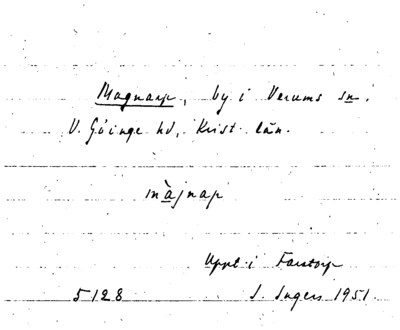 Magnarp, by i Verums sn.
V. Göinge hd, Krist. län.
màjnap
Uppt. i Farstorp
5128 I. Ingers 1951.